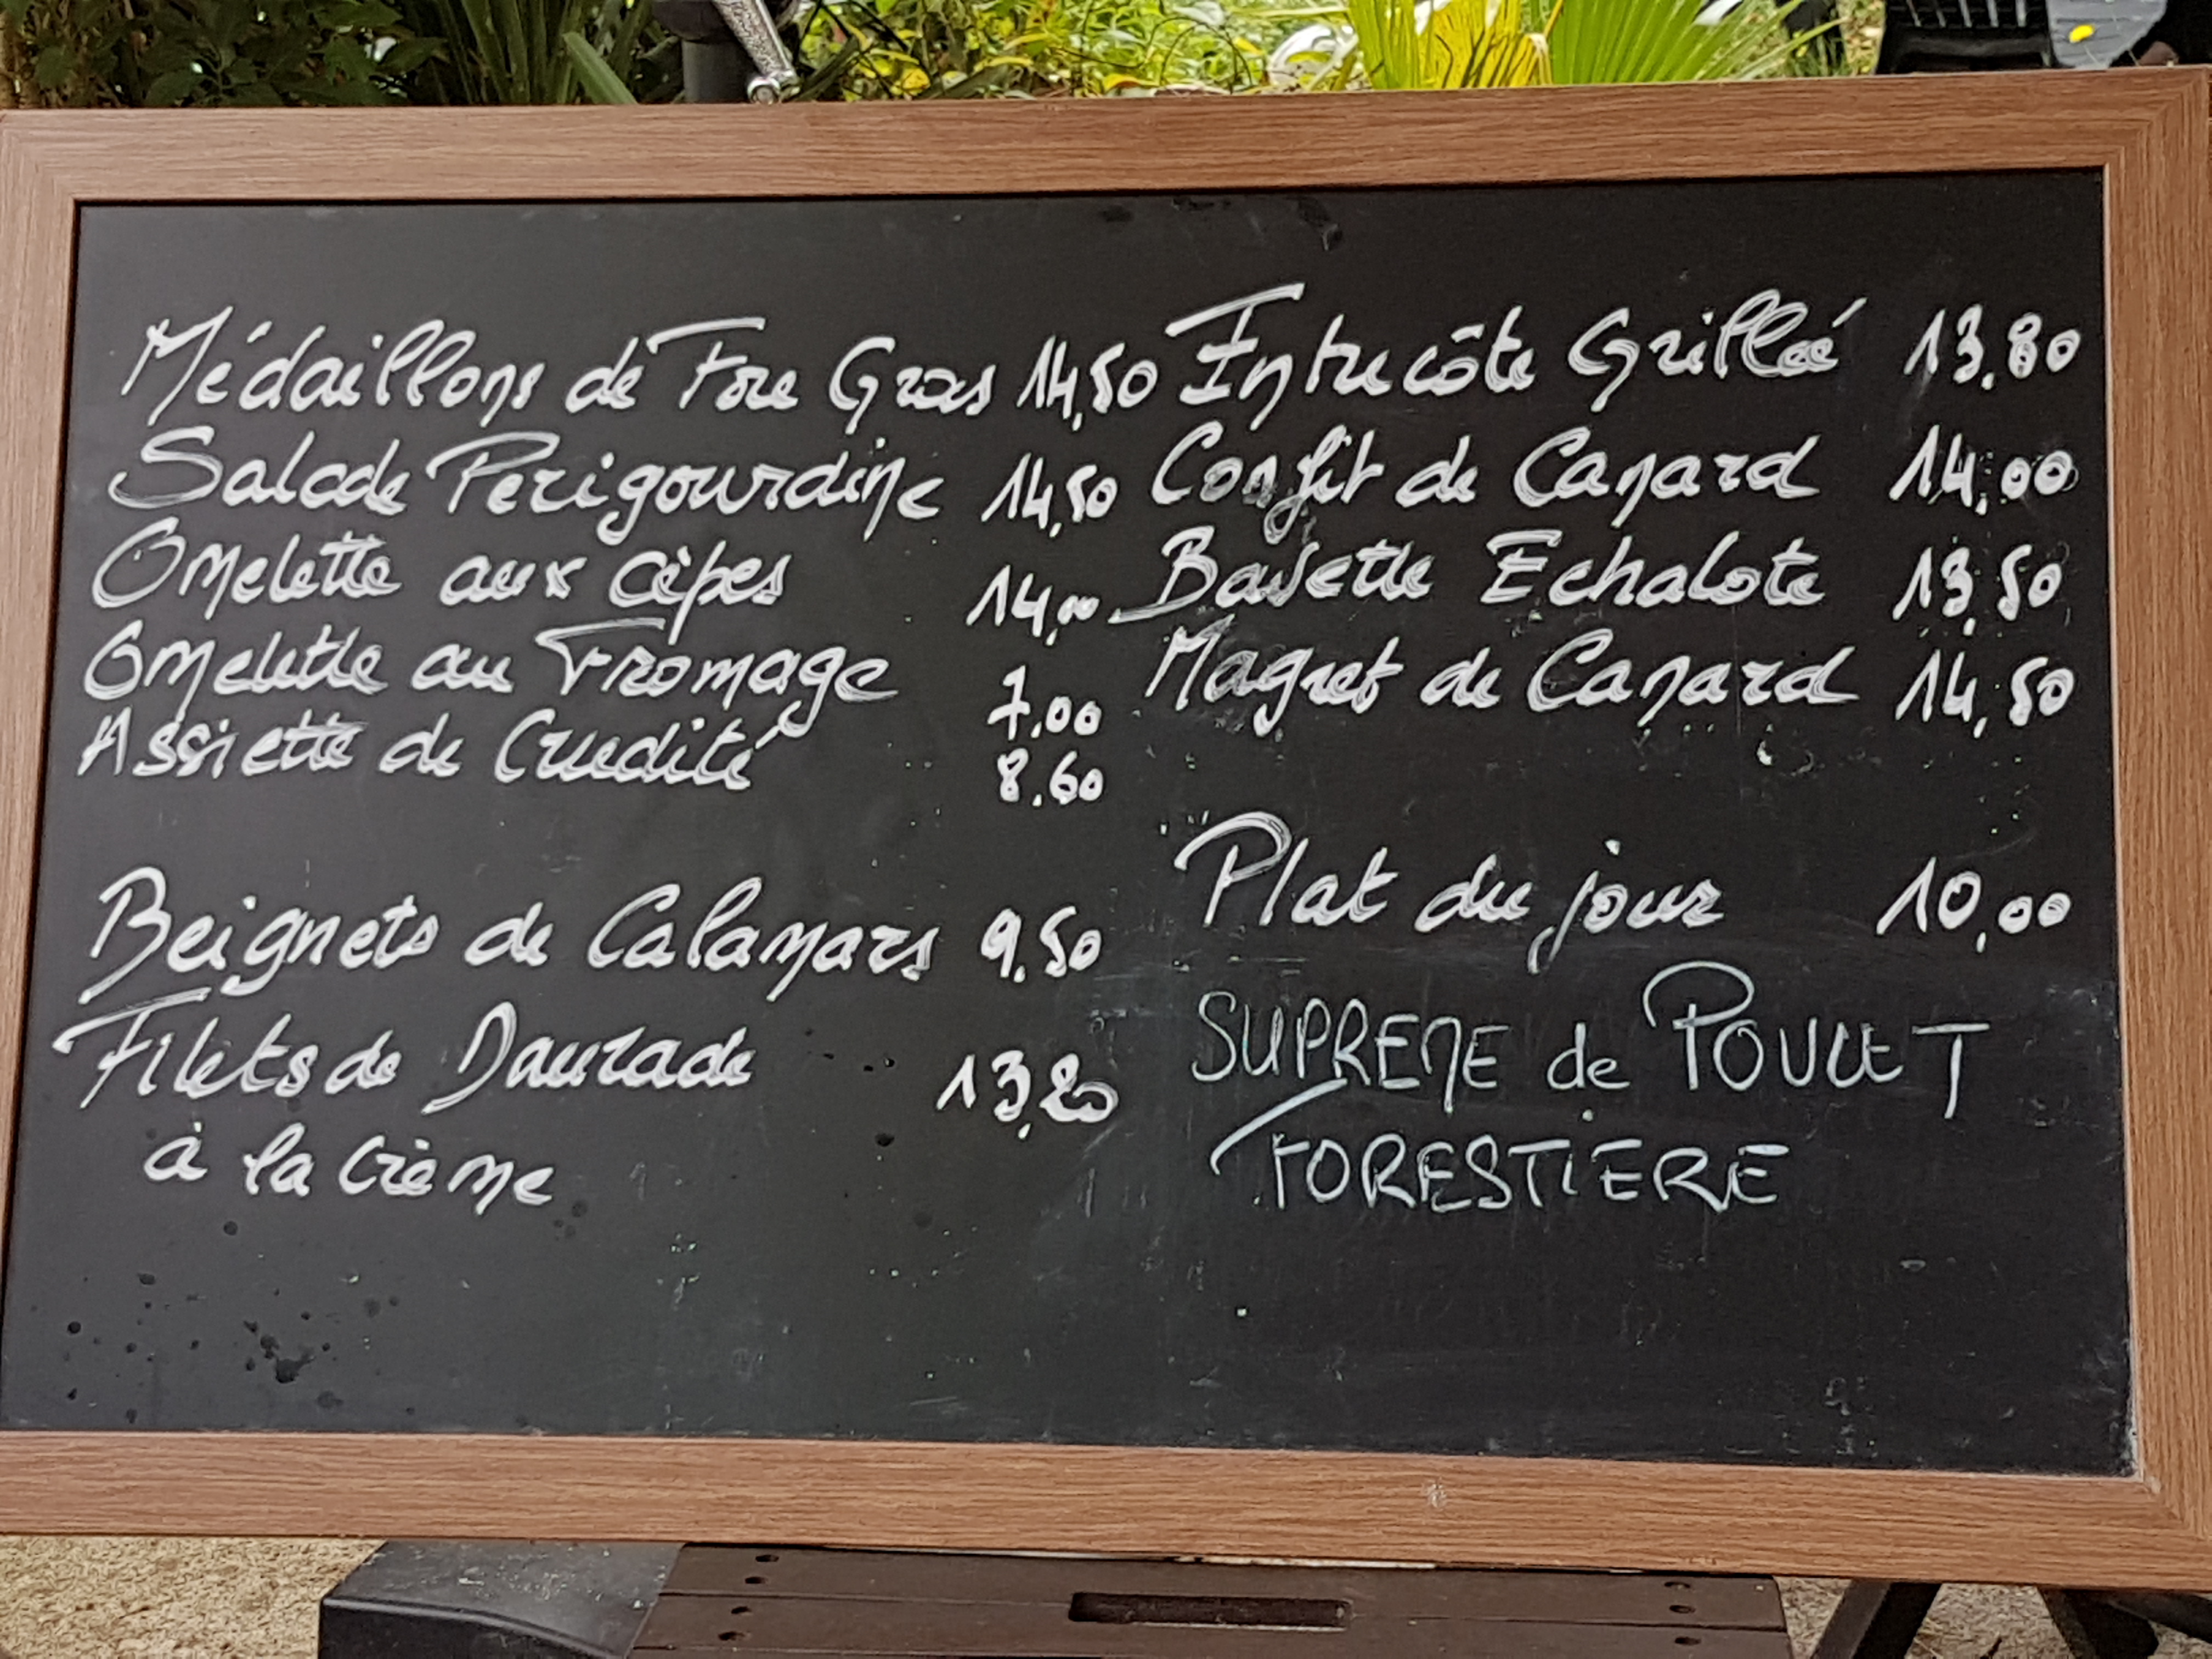 Médaillons de Foie Gras 14,50
Salade Perigourdine 14,50
Omelette aux cèpes 14,00
Omelette au Fromage 7,00
Assiette de Crudité 8.60
Beignets de Calamars 9.50
Filets de Daurade 13,20
à la Crème
Entrecôte Grillée 13.80
Confit de Canard 14,00
Bavette Echalote 13,50
Magret de Canard 14,50
Plat du jour 10,00
SUPREME de POULET
FORESTIERE